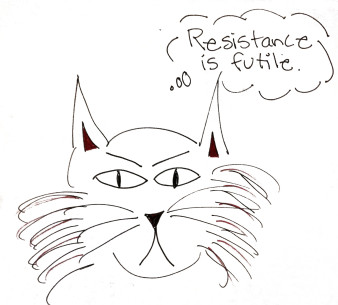 Resistance
is futile.